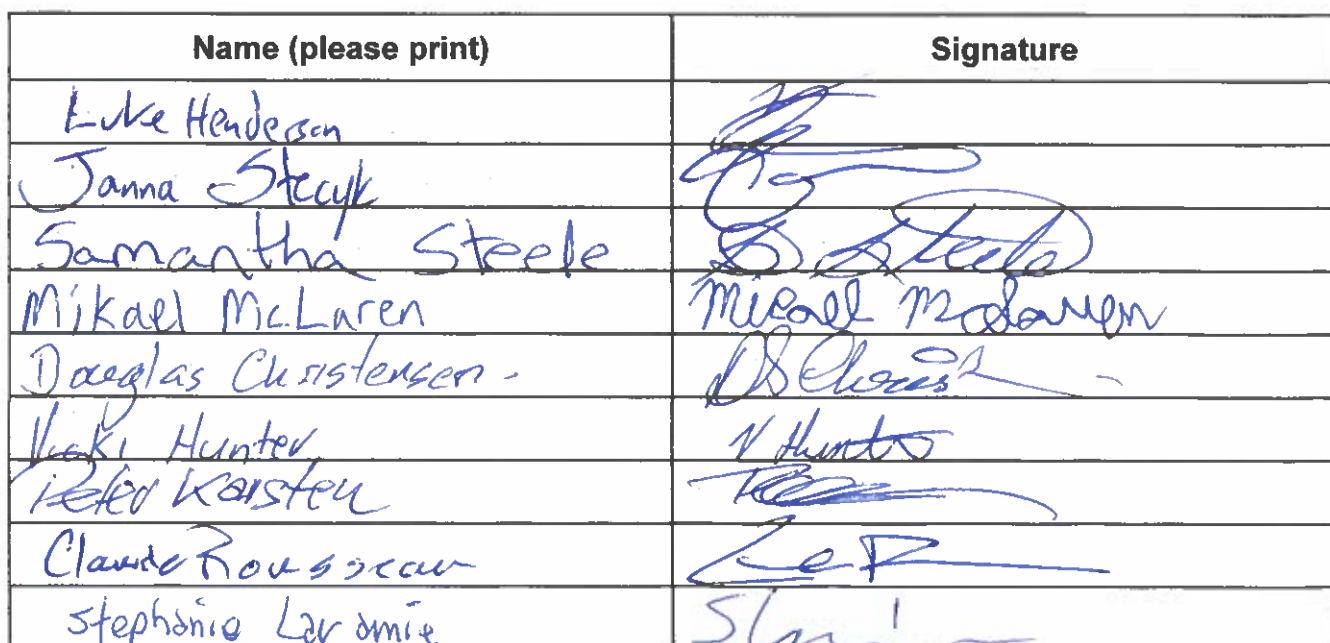 Name (please print) Signature
Luke Henderson
Janna Stecyk
Samantha Steele S Steele
Mikael McLaren Micael McLaren
Douglas Christensen. DS Christ
Vicki Hunter V Hunter
Peter Karsten
Claude Rousseau
Stephanie Laramie